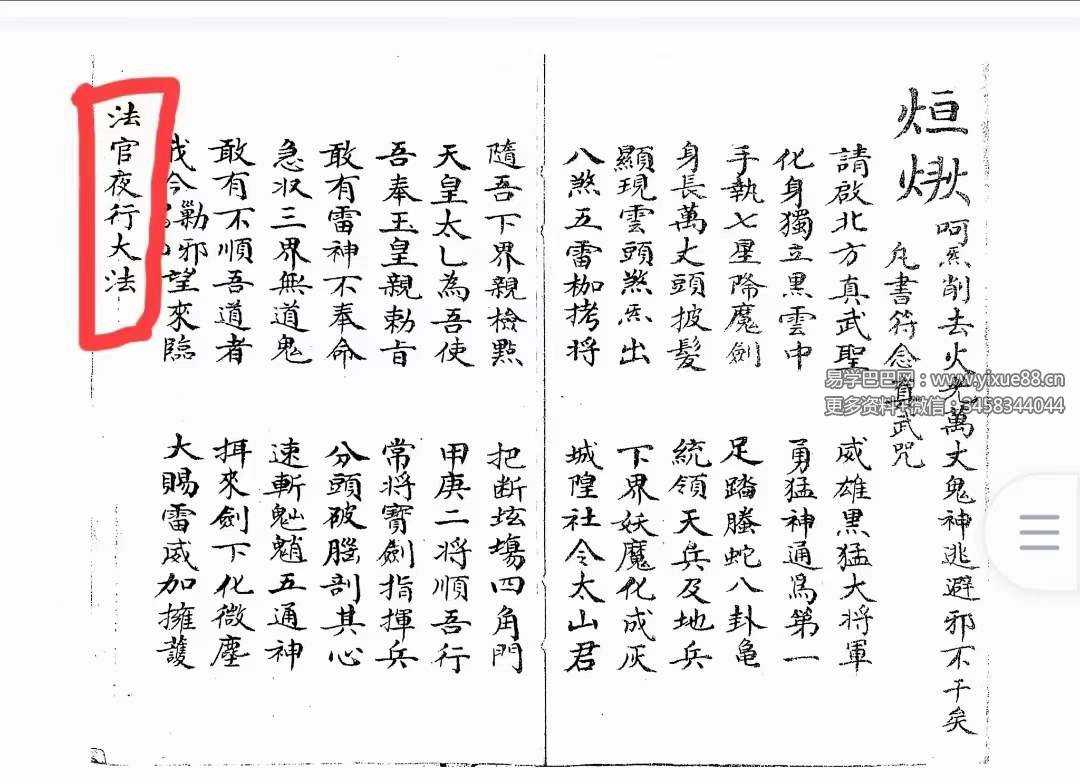 烜
呵炁削去火光萬丈鬼神逃避邪不干矣
凡書符念真武咒
請啟北方真武聖 威雄黑猛大將軍
化身獨立黑雲中 勇猛神通為第一
手執七星降魔劍 足踏螣蛇八卦龜
身長萬丈頭披髮 統領天兵及地兵
顯現雲頭煞炁出 下界妖魔化成灰
八煞五雷枷拷將 城隍社令太山君
隨吾下界親檢點 把断坛塲四角門
天皇太乙為吾使 甲庚二将順吾行
吾奉玉皇親勅旨 常將寶劍指揮兵
敢有雷神不奉命 分頭破腦剖其心
急收三界無道鬼 速斬魀魈五通神
敢有不順吾道者 拝來劍下化微塵
我今勦邪望來臨 大賜雷威加擁護
法官夜行大法
易学巴巴网：www.yixue88.cn
更多资料+微信：3458344044